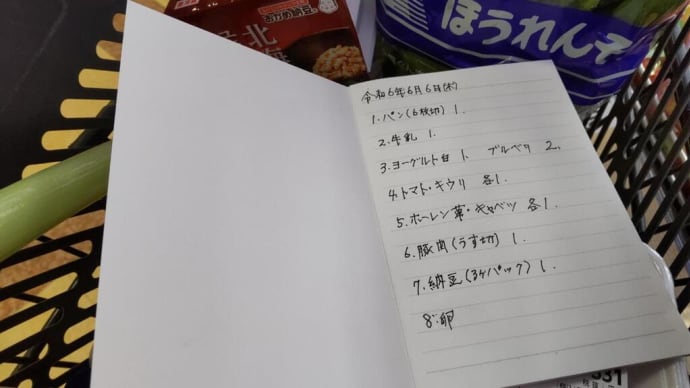 おかめ納豆
北
ほうれんそ
令和6年6月6日(木)
1.パン(6枚切) 1.
2.牛乳 1.
3.ヨーグルト白 1. ブルベリ 2.
4.トマト・キウリ 各1.
5.ホーレン草・キャベツ 各1.
6.豚肉(うす切) 1.
7.納豆(3ケパック) 1.
8.卵
331